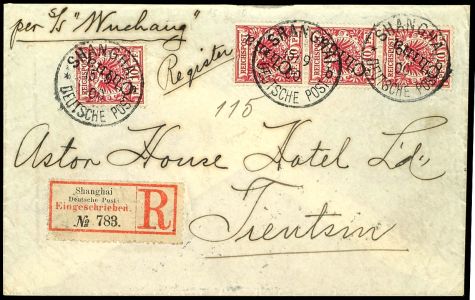 per S/S "Wuchang"
Register
SHANGHAI
DEUTSCHE POST
SHANGHAI
DEUTSCHE POST
SHANGHAI
DEUTSCHE POST
115
Aston House Hotel Ld.
Tientsin
Shanghai
Deutsche Post
Eingeschrieben.
№ 783.
R